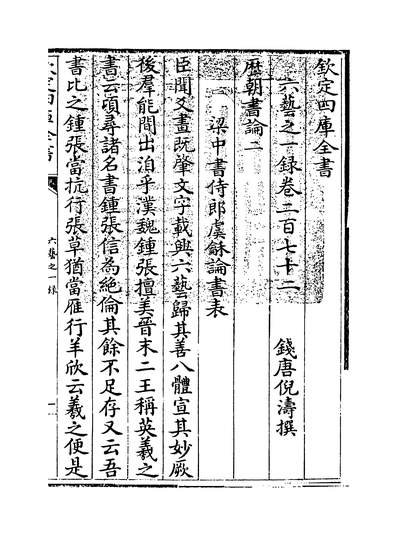 欽定四庫全書
六藝之一録卷二百七十二
錢唐倪濤撰
歴朝書論二
梁中書侍郎虞龢論書表
臣聞爻畫既肇文字載興六藝歸其善八體宣其妙厥
後羣能間出洎乎漢魏鍾張擅美晉末二王稱英羲之
書云頃尋諸名書鍾張信為絶倫其餘不足存又云吾
書比之鍾張當抗行張草猶當雁行羊欣云羲之便是
欽定四庫全書
六藝之一録
一